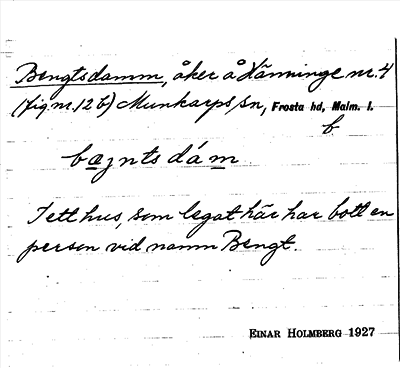 Bengtsdamm, åker å Hänninge nr. 4
(fig. nr. 12 b) Munkarps sn, Frosta hd, Malm. l.
b.
bæŋntsdám
I ett hus, som legat här har bott en
person vid namn Bengt.
EINAR HOLMBERG 1927